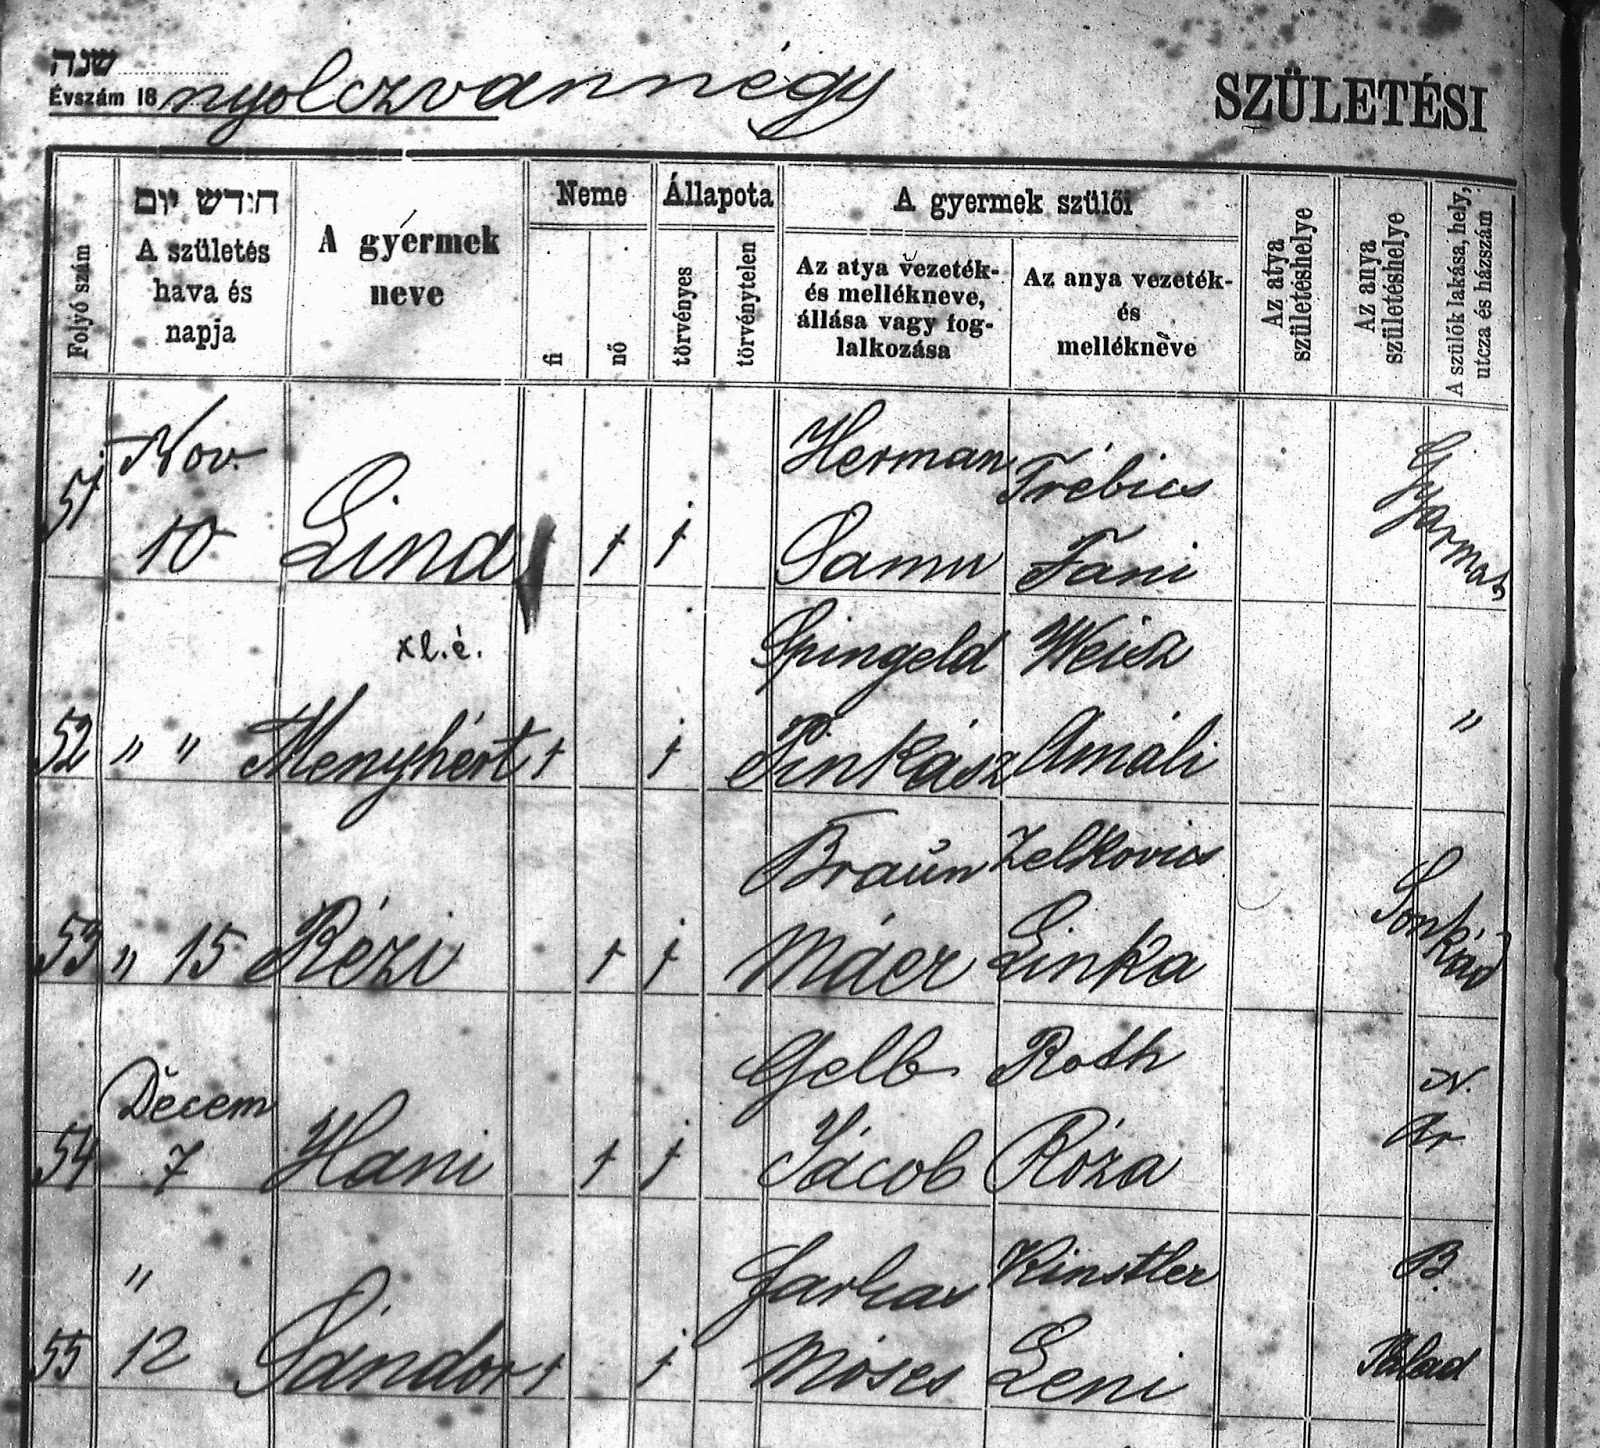 שנה
Évszám 18 nyolczvannégy
SZÜLETÉSI
Folyó szám
חדש יום
A születés hava és napja
A gyermek neve
Neme
fi
nő
Állapota
törvényes
törvénytelen
A gyermek szülői
Az atya vezeték- és mellékneve, állása vagy fog- lalkozása
Az anya vezeték- és mellékneve
Az atya születéshelye
Az anya születéshelye
A szülők lakása, hely, utcza és házszám
51 Nov. 10 Lina † † Herman Samu Trébics Fáni Gyarmat
xl.é.
52 " " Menyhért † † Spingeld Pinkász Weisz Amáli "
53 " 15 Rézi † † Braun Máer Zelkovics Linka Sonkád
54 Decem 7 Hani † † Gelb Jácob Roth Róza N. Ar
55 " 12 Sándor † † Moses Kinstler Leni B.